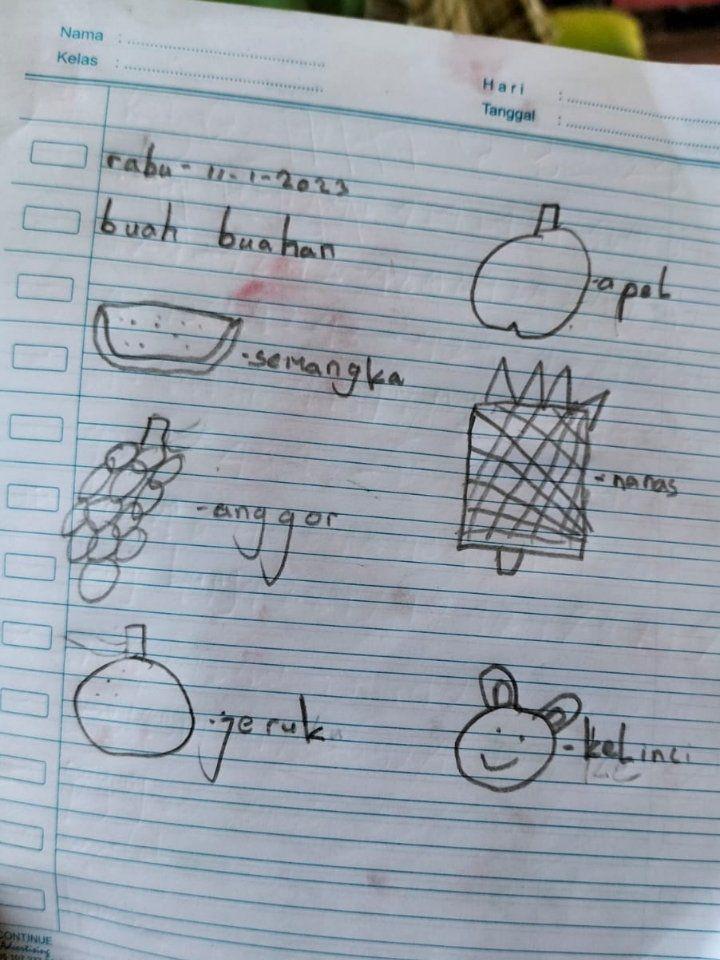 Nama :
Kelas :
Hari :
Tanggal :
rabu - 11-1-2023
buah buahan
-apel
-semangka
-nanas
-anggor
-jeruk
-kelinci
CONTINUE
Advertising